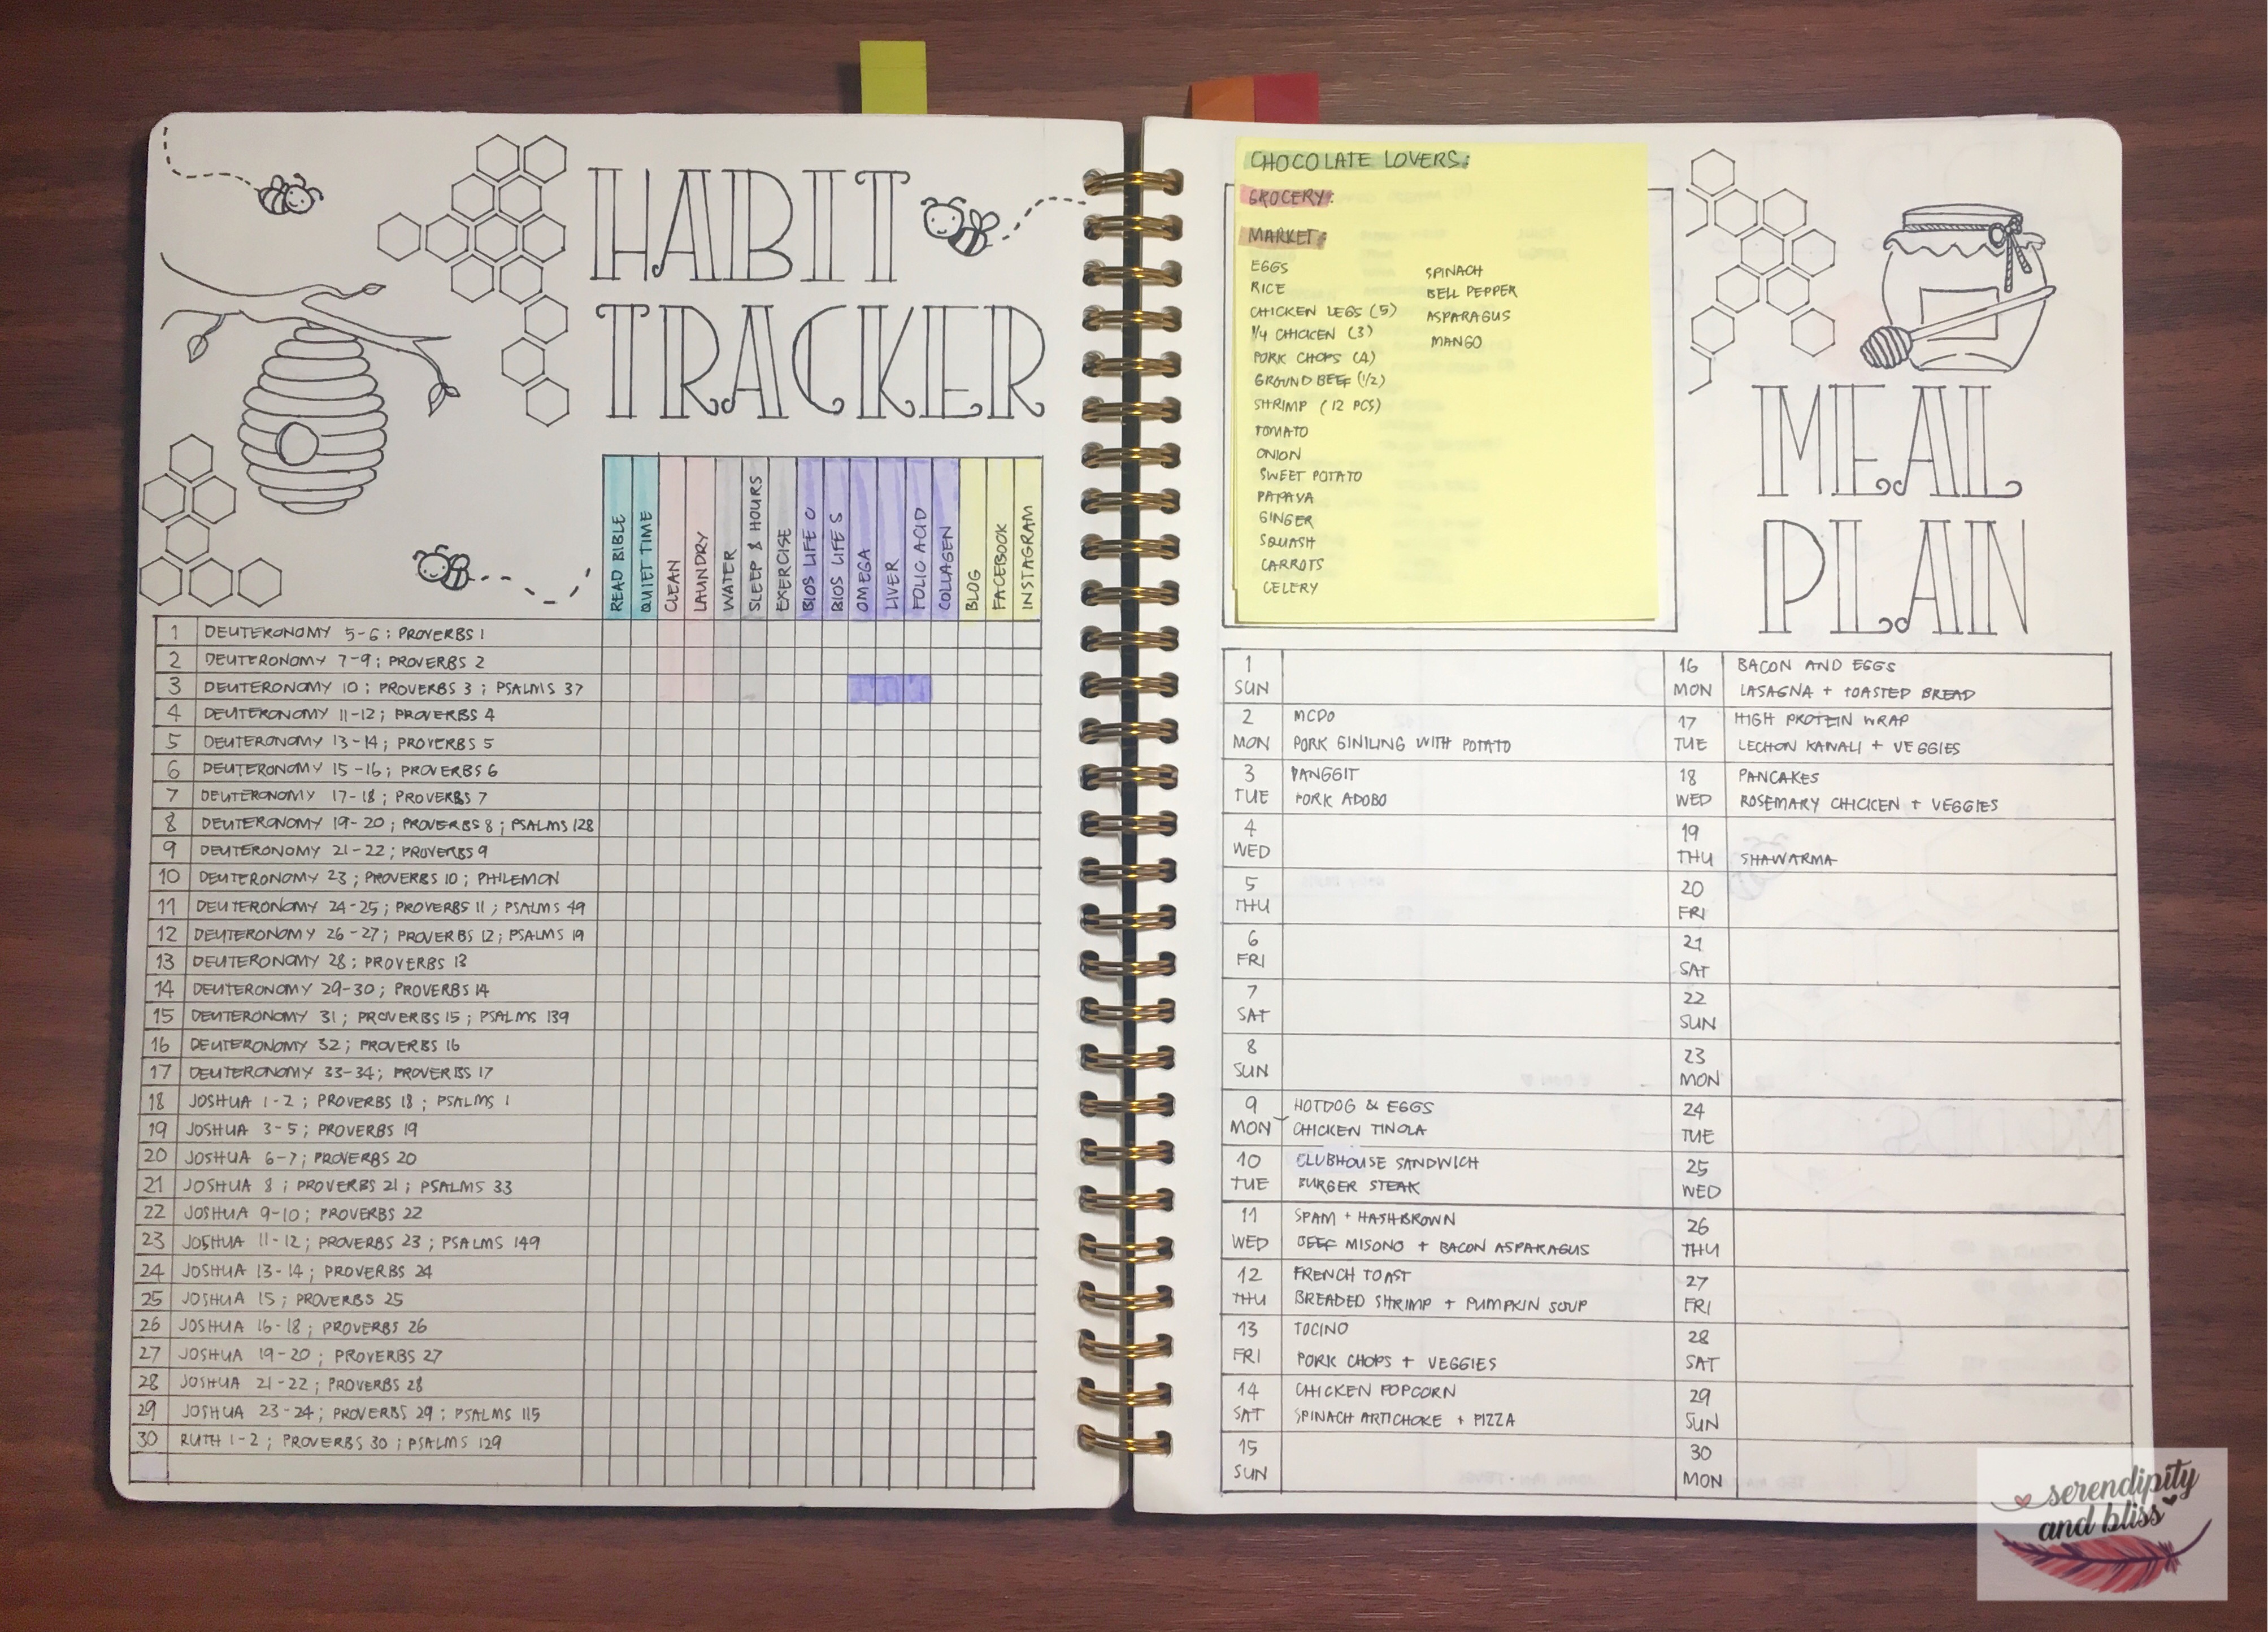 HABIT
TRACKER
READ BIBLE
QUIET TIME
CLEAN
LAUNDRY
WATER
SLEEP 8 HOURS
EXERCISE
BIOS LIFE C
BIOS LIFE S
OMEGA
LIVER
FOLIC ACID
COLLAGEN
BLOG
FACEBOOK
INSTAGRAM
1 DEUTERONOMY 5-6; PROVERBS 1
2 DEUTERONOMY 7-9; PROVERBS 2
3 DEUTERONOMY 10; PROVERBS 3; PSALMS 37
4 DEUTERONOMY 11-12; PROVERBS 4
5 DEUTERONOMY 13-14; PROVERBS 5
6 DEUTERONOMY 15-16; PROVERBS 6
7 DEUTERONOMY 17-18; PROVERBS 7
8 DEUTERONOMY 19-20; PROVERBS 8; PSALMS 128
9 DEUTERONOMY 21-22; PROVERBS 9
10 DEUTERONOMY 23; PROVERBS 10; PHILEMON
11 DEUTERONOMY 24-25; PROVERBS 11; PSALMS 49
12 DEUTERONOMY 26-27; PROVERBS 12; PSALMS 19
13 DEUTERONOMY 28; PROVERBS 13
14 DEUTERONOMY 29-30; PROVERBS 14
15 DEUTERONOMY 31; PROVERBS 15; PSALMS 139
16 DEUTERONOMY 32; PROVERBS 16
17 DEUTERONOMY 33-34; PROVERBS 17
18 JOSHUA 1-2; PROVERBS 18; PSALMS 1
19 JOSHUA 3-5; PROVERBS 19
20 JOSHUA 6-7; PROVERBS 20
21 JOSHUA 8; PROVERBS 21; PSALMS 33
22 JOSHUA 9-10; PROVERBS 22
23 JOSHUA 11-12; PROVERBS 23; PSALMS 149
24 JOSHUA 13-14; PROVERBS 24
25 JOSHUA 15; PROVERBS 25
26 JOSHUA 16-18; PROVERBS 26
27 JOSHUA 19-20; PROVERBS 27
28 JOSHUA 21-22; PROVERBS 28
29 JOSHUA 23-24; PROVERBS 29; PSALMS 115
30 RUTH 1-2; PROVERBS 30; PSALMS 129
CHOCOLATE LOVERS:
GROCERY:
MARKET:
EGGS
RICE
CHICKEN LEGS (5)
1/4 CHICKEN (3)
PORK CHOPS (4)
GROUND BEEF (1/2)
SHRIMP (12 PCS)
TOMATO
ONION
SWEET POTATO
PAPAYA
GINGER
SQUASH
CARROTS
CELERY
SPINACH
BELL PEPPER
ASPARAGUS
MANGO
MEAL
PLAN
1
SUN
2 MCDO
MON PORK GINILING WITH POTATO
3 DANGGIT
TUE PORK ADOBO
4
WED
5
THU
6
FRI
7
SAT
8
SUN
9 HOTDOG & EGGS
MON CHICKEN TINOLA
10 CLUBHOUSE SANDWICH
TUE BURGER STEAK
11 SPAM + HASHBROWN
WED BEEF MISONO + BACON ASPARAGUS
12 FRENCH TOAST
THU BREADED SHRIMP + PUMPKIN SOUP
13 TOCINO
FRI PORK CHOPS + VEGGIES
14 CHICKEN POPCORN
SAT SPINACH ARTICHOKE + PIZZA
15
SUN
16 BACON AND EGGS
MON LASAGNA + TOASTED BREAD
17 HIGH PROTEIN WRAP
TUE LECHON KAWALI + VEGGIES
18 PANCAKES
WED ROSEMARY CHICKEN + VEGGIES
19
THU SHAWARMA
20
FRI
21
SAT
22
SUN
23
MON
24
TUE
25
WED
26
THU
27
FRI
28
SAT
29
SUN
30
MON
serendipity
and bliss